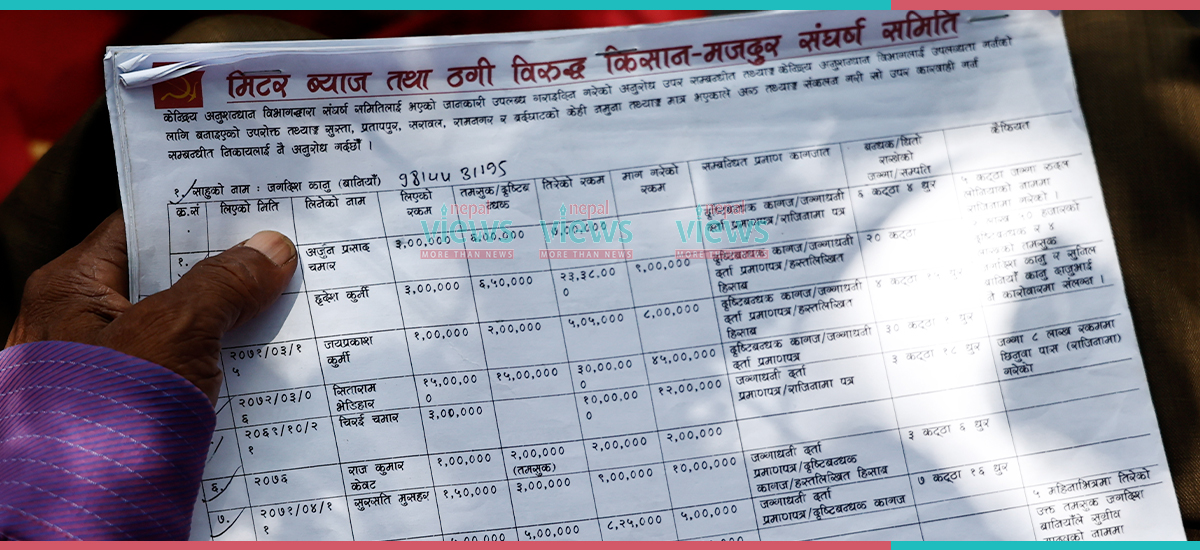 मिटर ब्याज तथा ठगी विरुद्ध किसान-मजदुर संघर्ष समिति
केन्द्रिय अनुसन्धान विभागद्धारा संघर्ष समितिलाई भएको जानकारी उपलब्ध गराइदिन गरेको अनुरोध उपर सम्बन्धीत तथ्याङ्क केन्द्रिय अनुसन्धान विभागलाई उपलब्धता गर्नको
लागि बनाइएको उपरोक्त तथ्याङ्क सुस्ता, प्रतापपुर, सरावल, रामनगर र बर्दघाटको केही नमुना तथ्याङ्क मात्र भएकाले अरु तथ्याङ्क संकलन गरी सो उपर कारवाही गर्न
सम्बन्धीत निकायलाई नै अनुरोध गर्दछौं ।
१. साहुको नाम : जगदिश कानु (बानियाँ) 98144 31195
क्र.सं. लिएको मिति लिनेको नाम लिएको रकम तमसुक/दृष्टिबन्धक तिरेको रकम माग गरेको रकम सम्बन्धित प्रमाण कागजात बन्धक/धितो राखेको जग्गा/सम्पति कैफियत
१. अर्जुन प्रसाद चमार ३,००,००० ६,००,००० ७,००,००० दृष्टिबन्धक कागज/जग्गाधनी दर्ता प्रमाणपत्र/राजिनामा पत्र ६ कट्ठा ४ धुर
हृदेश कुर्मी ३,००,००० ६,५०,००० २३,३८,००० ९,००,००० दृष्टिबन्धक कागज/जग्गाधनी दर्ता प्रमाणपत्र/हस्तलिखित हिसाब २० कट्ठा
२०७१/०३/१५ जयप्रकाश कुर्मी १,००,००० २,००,००० ५,०५,००० ८,००,००० दृष्टिबन्धक कागज/जग्गाधनी दर्ता प्रमाणपत्र/हस्तलिखित हिसाब ४ कट्ठा
२०७२/०३/०६ सिताराम भेडिहार १५,००,००० १५,००,००० ३०,००,००० ४५,००,००० दृष्टिबन्धक कागज/जग्गाधनी दर्ता प्रमाणपत्र ३० कट्ठा १ धुर
२०६९/१०/२१ चिरई चमार ३,००,००० १०,००,००० १२,००,००० जग्गाधनी दर्ता प्रमाणपत्र/राजिनामा पत्र ३ कट्ठा १८ धुर जग्गा ८ लाख रकममा छिनुवा पास (राजिनामा) गरेको
६. २०७६ राज कुमार केवट १,००,००० २,००,००० (तमसुक) २,००,००० २,००,०००
७. २०७१/०४/११ सुरसति मुसहर १,५०,००० ३,००,००० ९,००,००० १०,००,००० जग्गाधनी दर्ता प्रमाणपत्र/दृष्टिबन्धक कागज/हस्तलिखित हिसाब ३ कट्ठा ६ धुर
५,००,००० ८,२५,००० ५,००,००० जग्गाधनी दर्ता प्रमाणपत्र/दृष्टिबन्धक कागज ७ कट्ठा १६ धुर ५ महिनाभित्रमा तिरेको उक्त तमसुक जगदिश बानियाँले सुग्रीव
nepal views MORE THAN NEWS
nepal views MORE THAN NEWS
nepal views MORE THAN NEWS